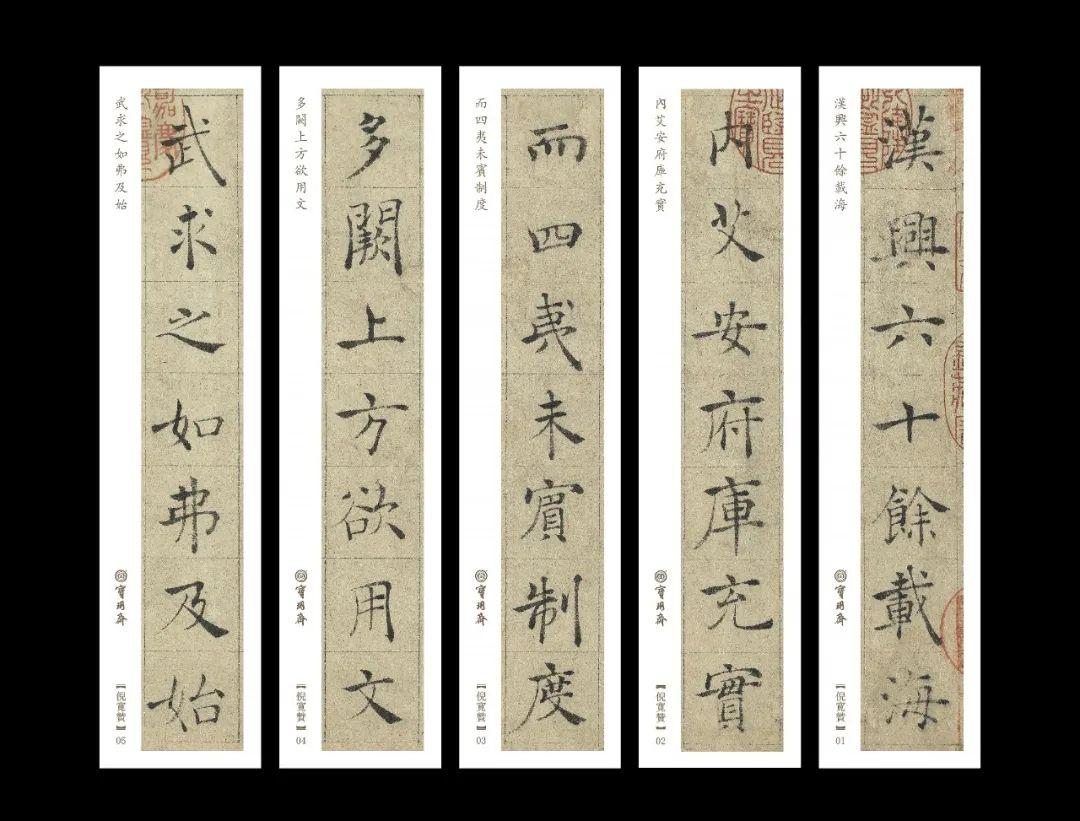 漢興六十餘載海
漢興六十餘載海
寶玥齋
【倪寬贊】
01
內艾安府庫充實
內艾安府庫充實
寶玥齋
【倪寬贊】
02
而四夷未賓制度
而四夷未賓制度
寶玥齋
【倪寬贊】
03
多闕上方欲用文
多闕上方欲用文
寶玥齋
【倪寬贊】
04
武求之如弗及始
武求之如弗及始
寶玥齋
【倪寬贊】
05